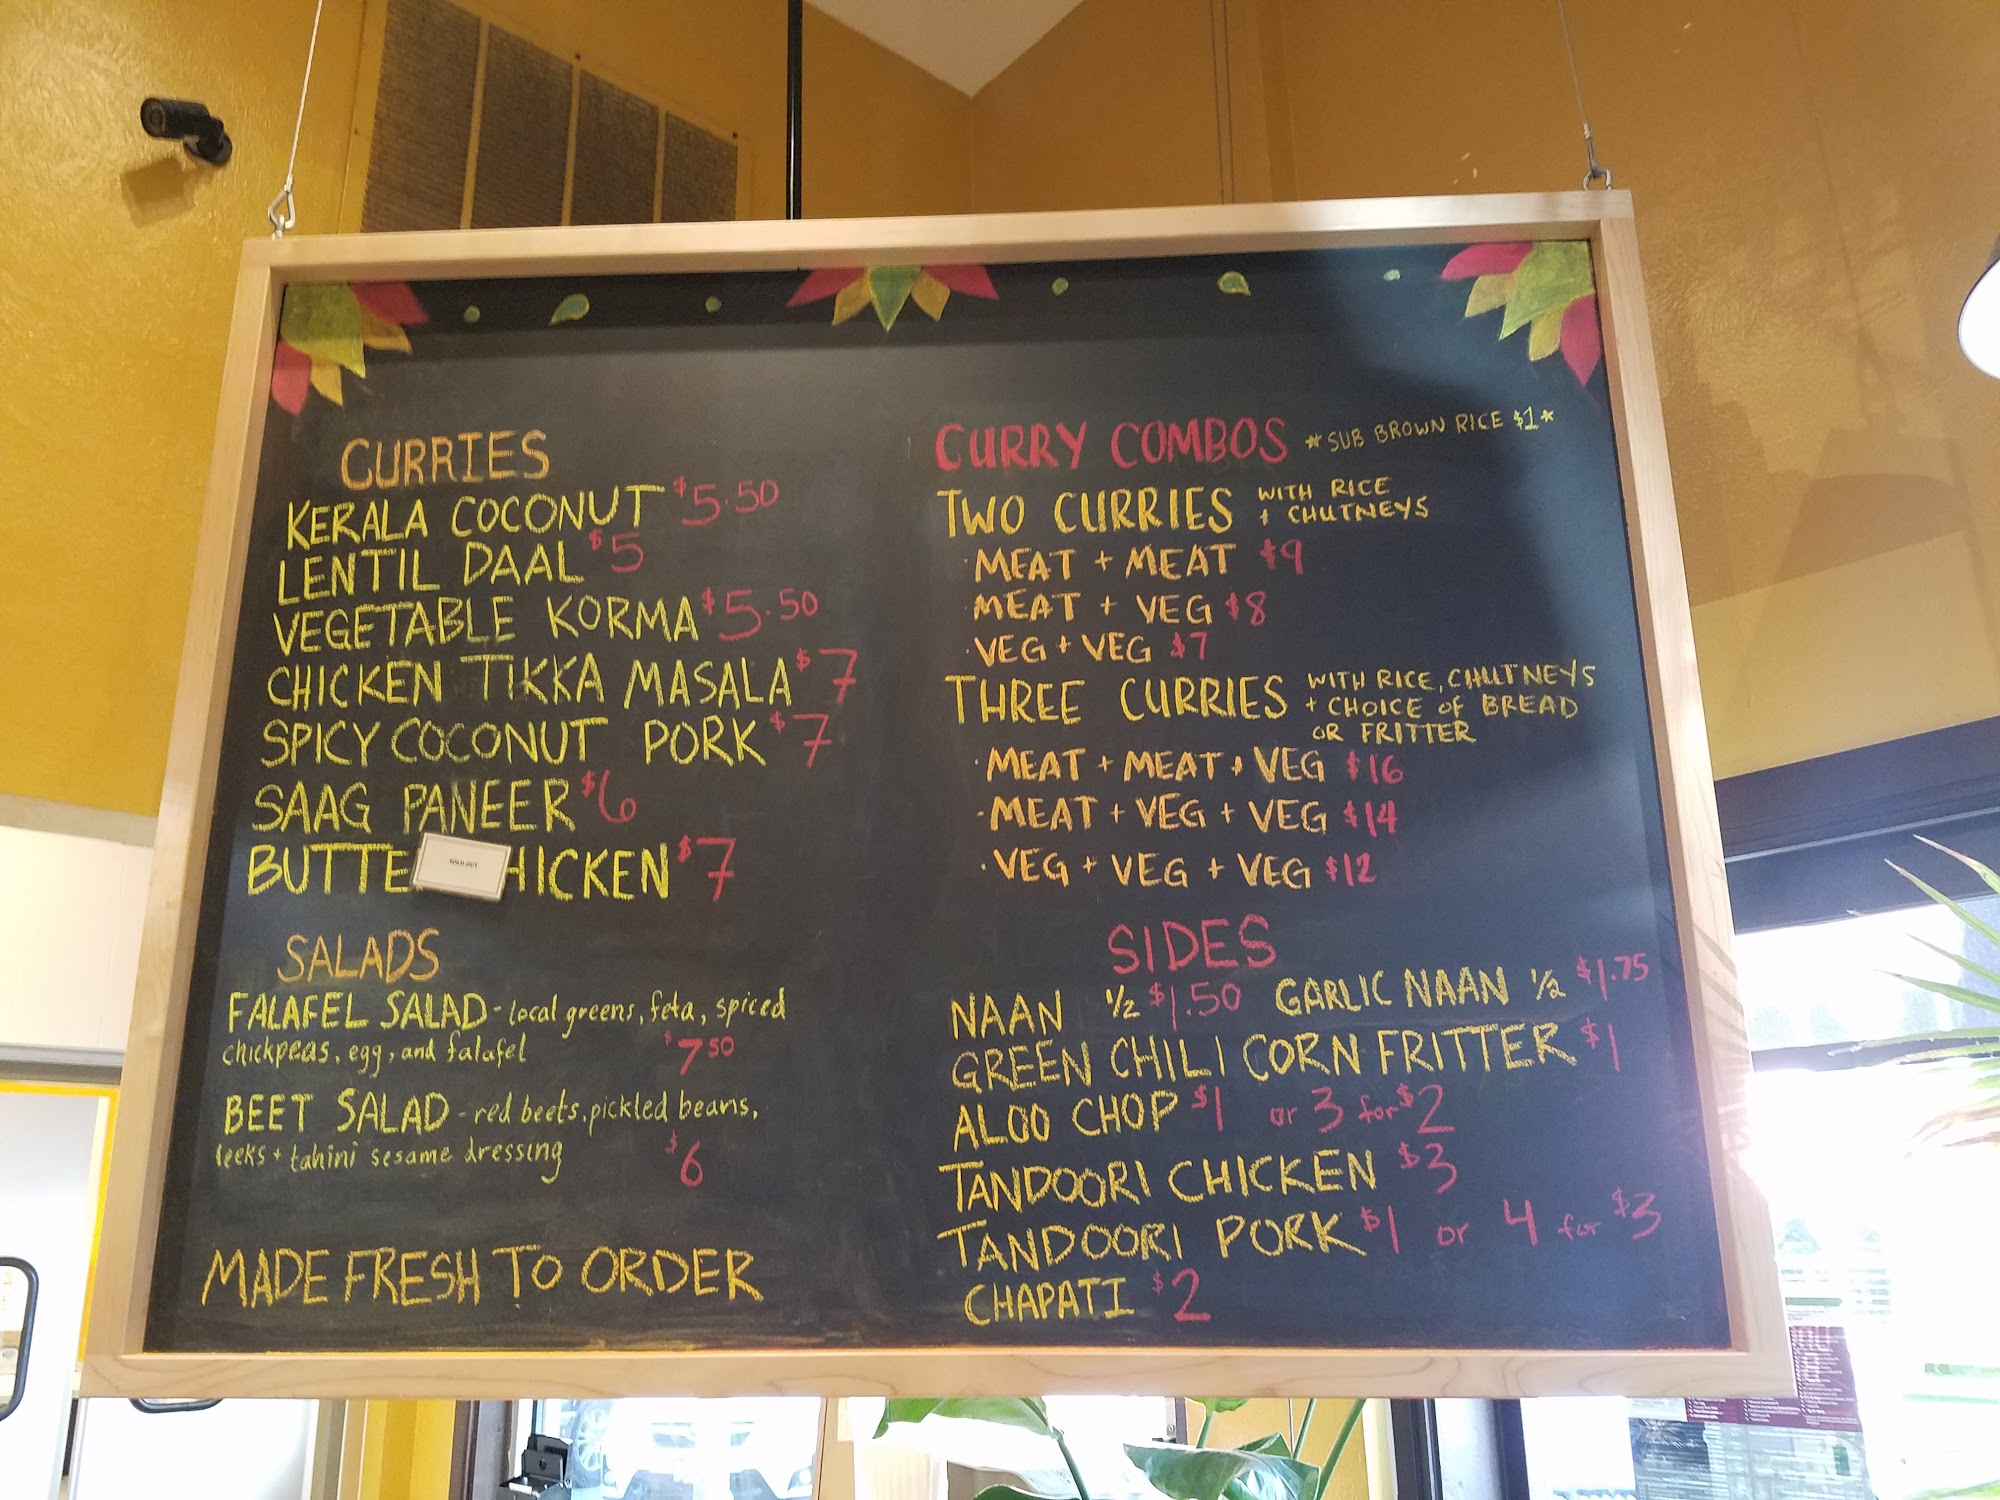 CURRIES
KERALA COCONUT $5.50
LENTIL DAAL $5
VEGETABLE KORMA $5.50
CHICKEN TIKKA MASALA $7
SPICY COCONUT PORK $7
SAAG PANEER $6
BUTTE HICKEN $7
SOLD OUT
SALADS
FALAFEL SALAD - local greens, feta, spiced
chickpeas, egg, and falafel $7 50
BEET SALAD - red beets, pickled beans,
leeks + tahini sesame dressing $6
MADE FRESH TO ORDER
CURRY COMBOS *SUB BROWN RICE $1*
TWO CURRIES WITH RICE
+ CHUTNEYS
· MEAT + MEAT $9
· MEAT + VEG $8
· VEG + VEG $7
THREE CURRIES WITH RICE, CHUTNEYS
+ CHOICE OF BREAD
OR FRITTER
· MEAT + MEAT + VEG $16
· MEAT + VEG + VEG $14
· VEG + VEG + VEG $12
SIDES
NAAN 1/2 $1.50 GARLIC NAAN 1/2 $1.75
GREEN CHILI CORN FRITTER $1
ALOO CHOP $1 or 3 for $2
TANDOORI CHICKEN $3
TANDOORI PORK $1 or 4 for $3
CHAPATI $2